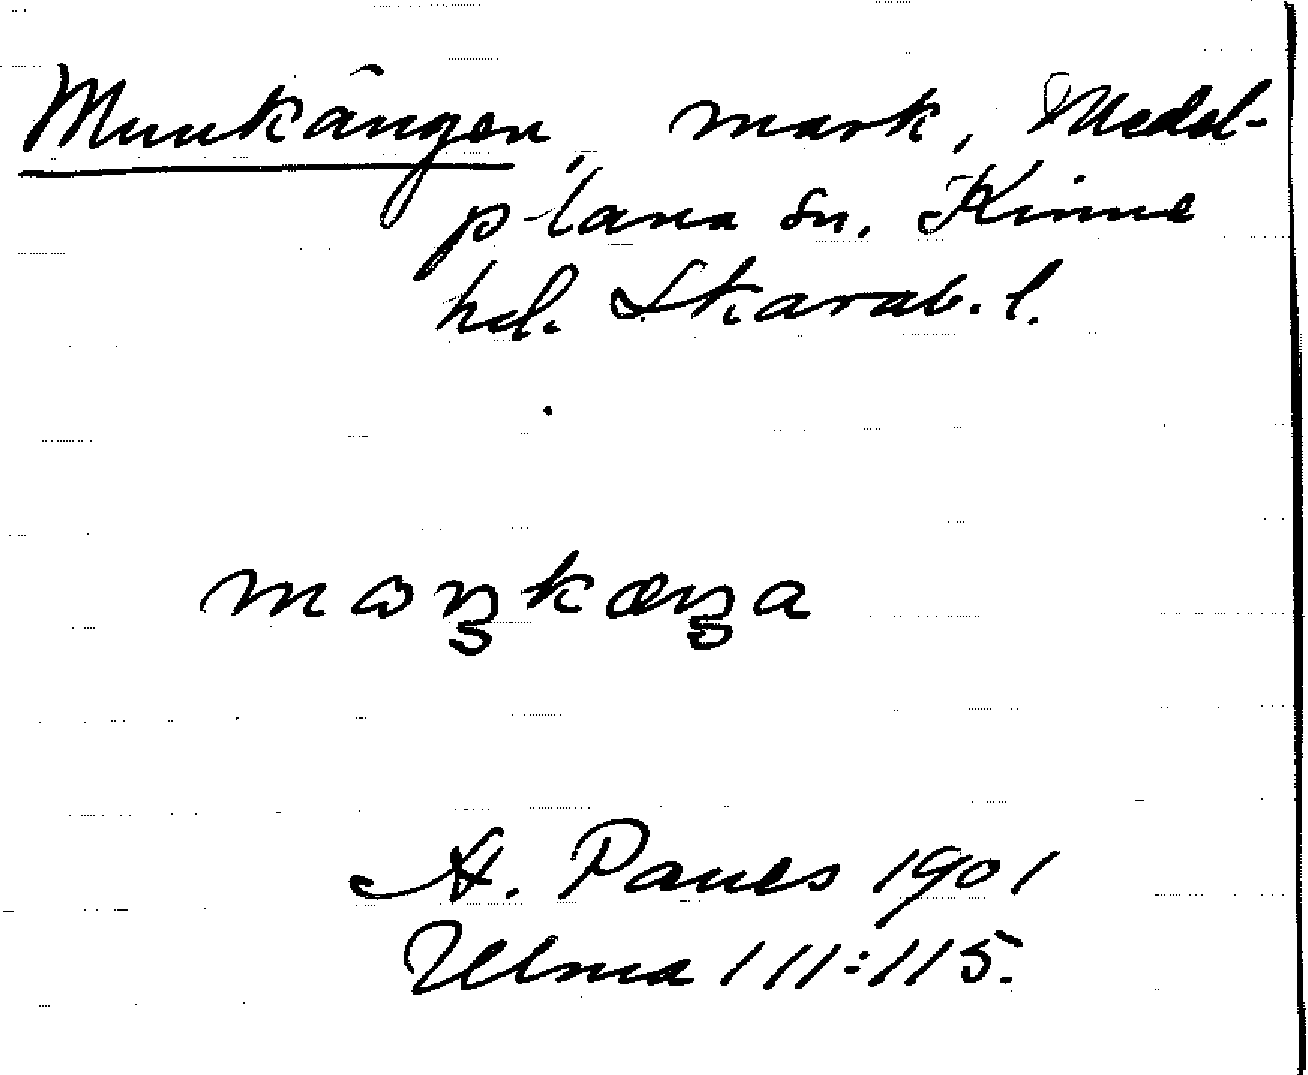 Munkängen, mark, Medel-
plana sn. Kinne
hd. Skarab. l.
mɷŋkæŋa
A. Paues 1901
Ulma 111:115.